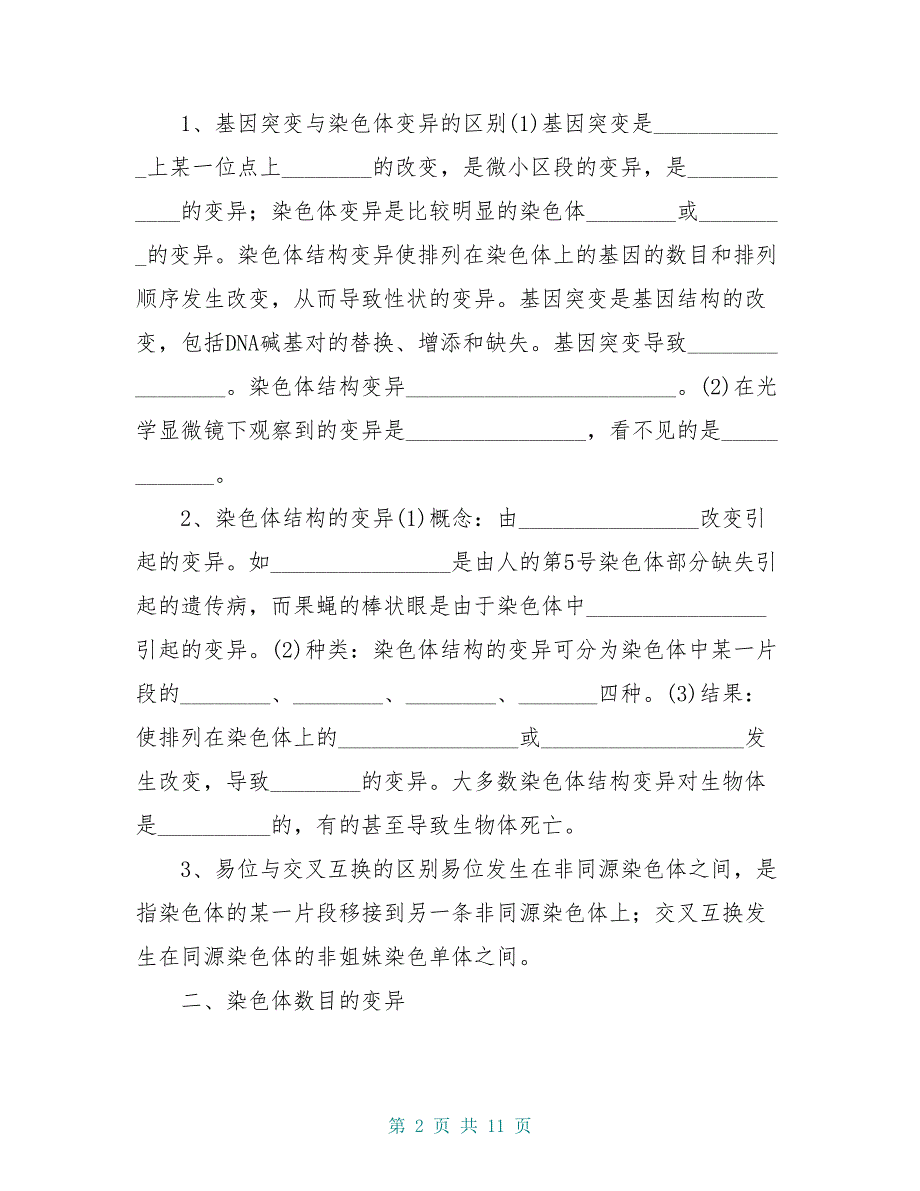 1、基因突变与染色体变异的区别(1)基因突变是___________
_上某一位点上________的改变，是微小区段的变异，是________
____的变异；染色体变异是比较明显的染色体________或_______
_的变异。染色体结构变异使排列在染色体上的基因的数目和排列
顺序发生改变，从而导致性状的变异。基因突变是基因结构的改
变，包括DNA碱基对的替换、增添和缺失。基因突变导致________
________。染色体结构变异________________________。(2)在光
学显微镜下观察到的变异是________________，看不见的是_____
_______。
2、染色体结构的变异(1)概念：由________________改变引
起的变异。如________________是由人的第5号染色体部分缺失引
起的遗传病，而果蝇的棒状眼是由于染色体中________________
引起的变异。(2)种类：染色体结构的变异可分为染色体中某一片
段的________、________、________、_______四种。(3)结果：
使排列在染色体上的________________或__________________发
生改变，导致________的变异。大多数染色体结构变异对生物体
是__________的，有的甚至导致生物体死亡。
3、易位与交叉互换的区别易位发生在非同源染色体之间，是
指染色体的某一片段移接到另一条非同源染色体上；交叉互换发
生在同源染色体的非姐妹染色单体之间。
二、染色体数目的变异
第 2 页 共 11 页